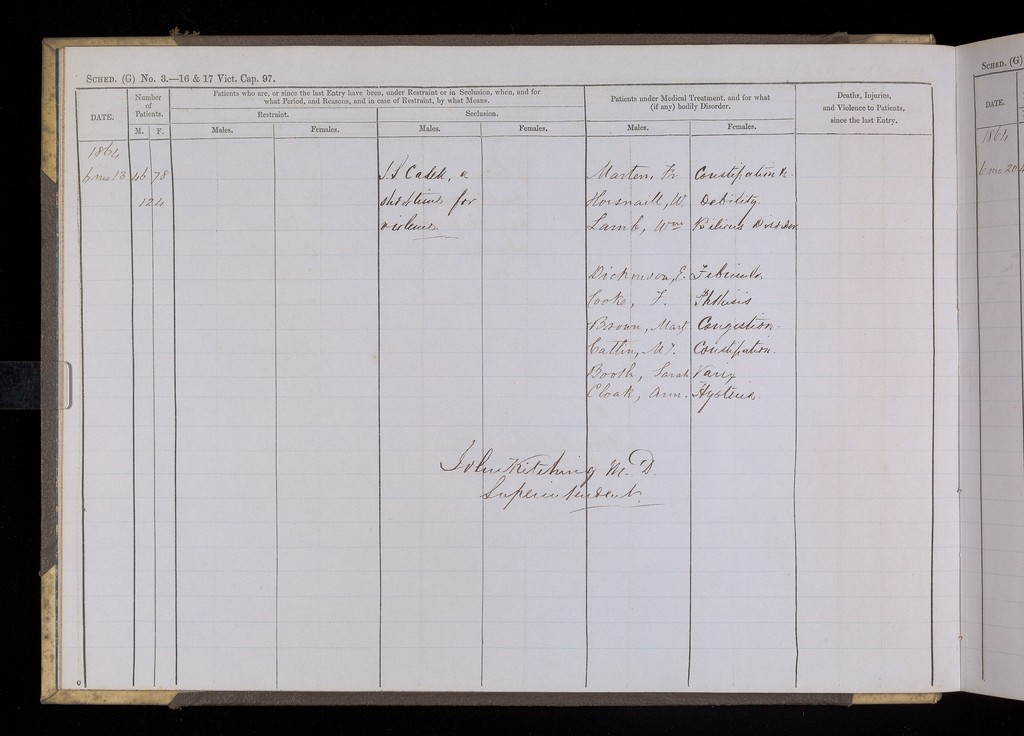 SCHED. (G) No. 3.—16 & 17 Vict. Cap. 97.
DATE.
Number of Patients.
M. F.
Patients who are, or since the last Entry have been, under Restraint or in Seclusion, when, and for
what Period, and Reasons, and in case of Restraint, by what Means.
Restraint.
Seclusion.
Males. Females. Males. Females.
Patients under Medical Treatment, and for what
(if any) bodily Disorder.
Males. Females.
Deaths, Injuries,
and Violence to Patients,
since the last Entry.
1864
6 mo 13 46 78
124
J. S. Cadell, a
short time for
violence
Marten, Fr. Constipation &c.
Horsnaill, W. Debility.
Lamb, Wm Bilious Disorder
Dickinson, E. Febricula
Cooke, F. Phthisis
Brown, Mary Congestion.
Catlin, M. J. Constipation.
Booth, Sarah Varix
Cloak, Ann. Hysteria.
John Kitching M.D.
Superintendent.
SCHED. (G)
DATE.
1864
6 mo 20